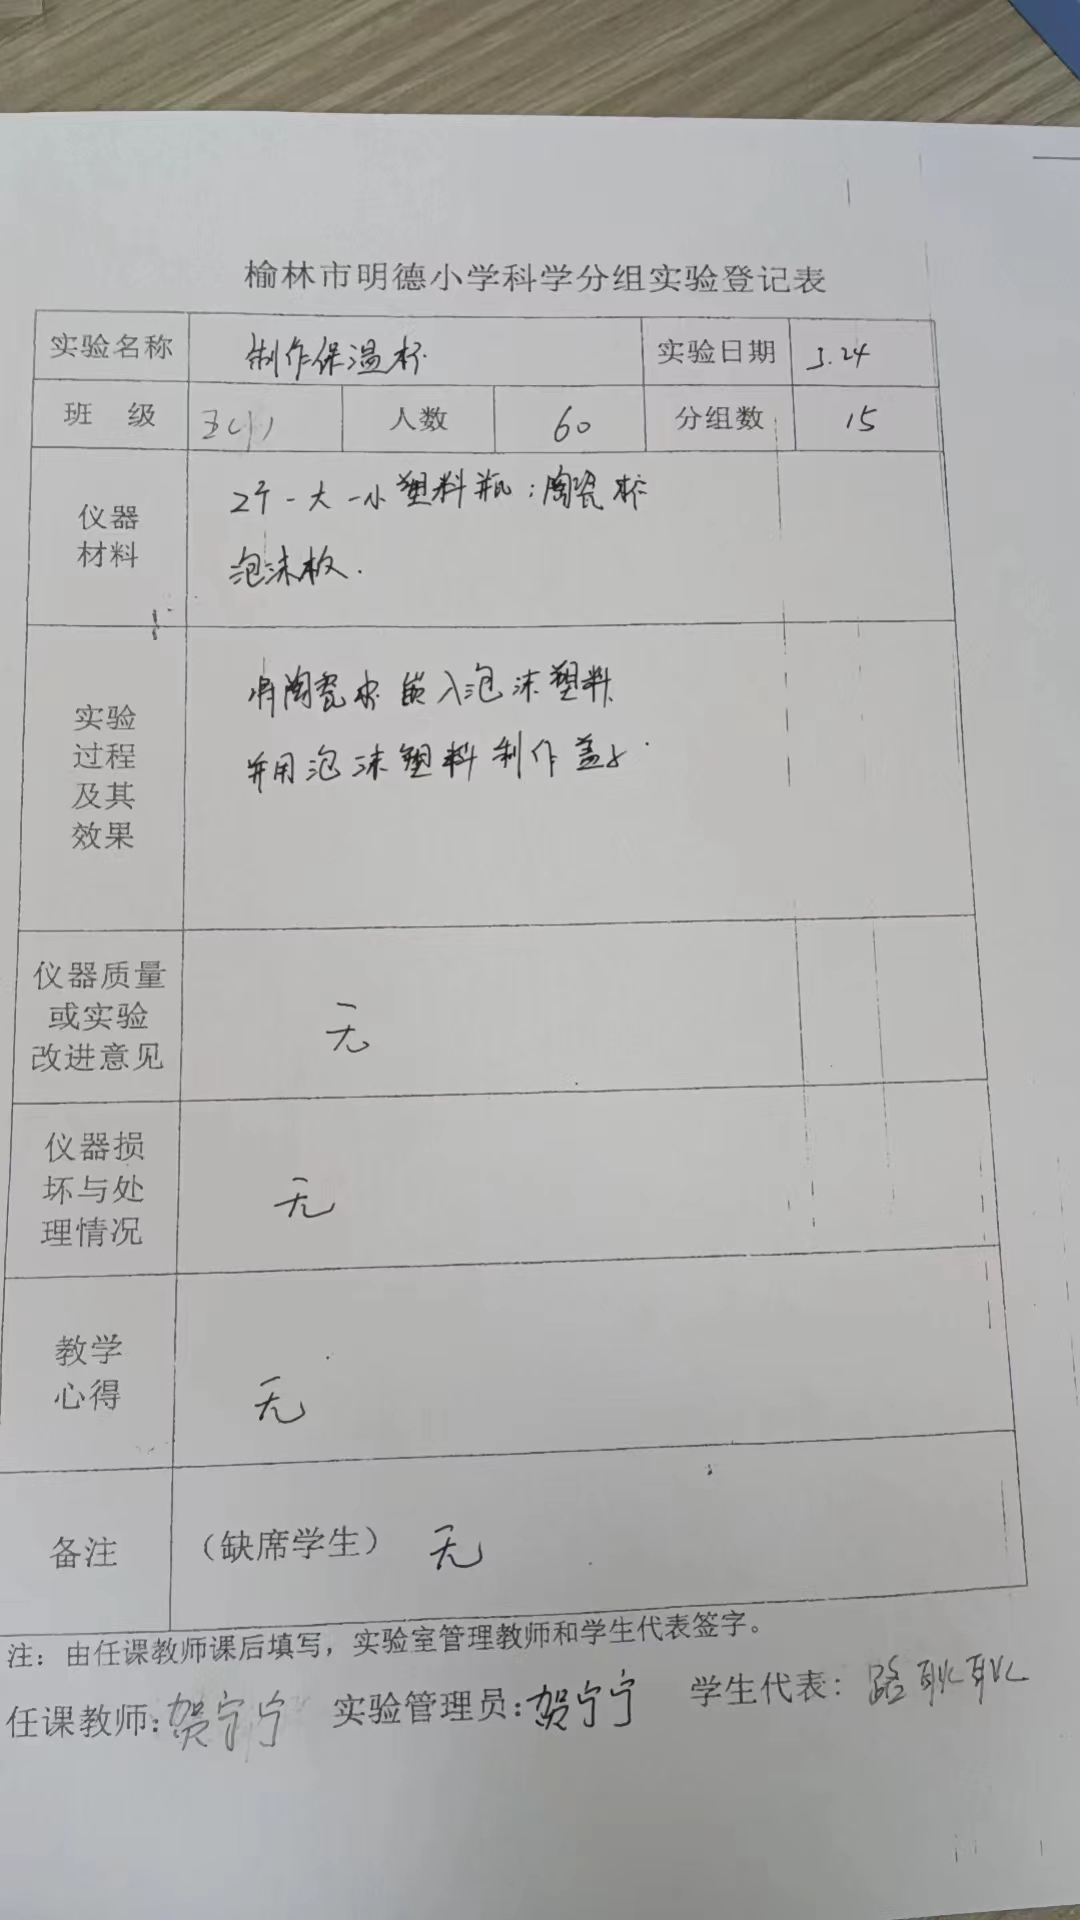 榆林市明德小学科学分组实验登记表
实验名称 制作保温杯 实验日期 3.24
班 级 五(1) 人数 60 分组数 15
仪器
材料
2个一大一小塑料瓶;陶瓷杯
泡沫板.
实验
过程
及其
效果
将陶瓷杯嵌入泡沫塑料
并用泡沫塑料制作盖子.
仪器质量
或实验
改进意见
无
仪器损
坏与处
理情况
无
教学
心得
无
备注 (缺席学生) 无
注:由任课教师课后填写,实验室管理教师和学生代表签字。
任课教师:贺宁宁 实验管理员:贺宁宁 学生代表:路